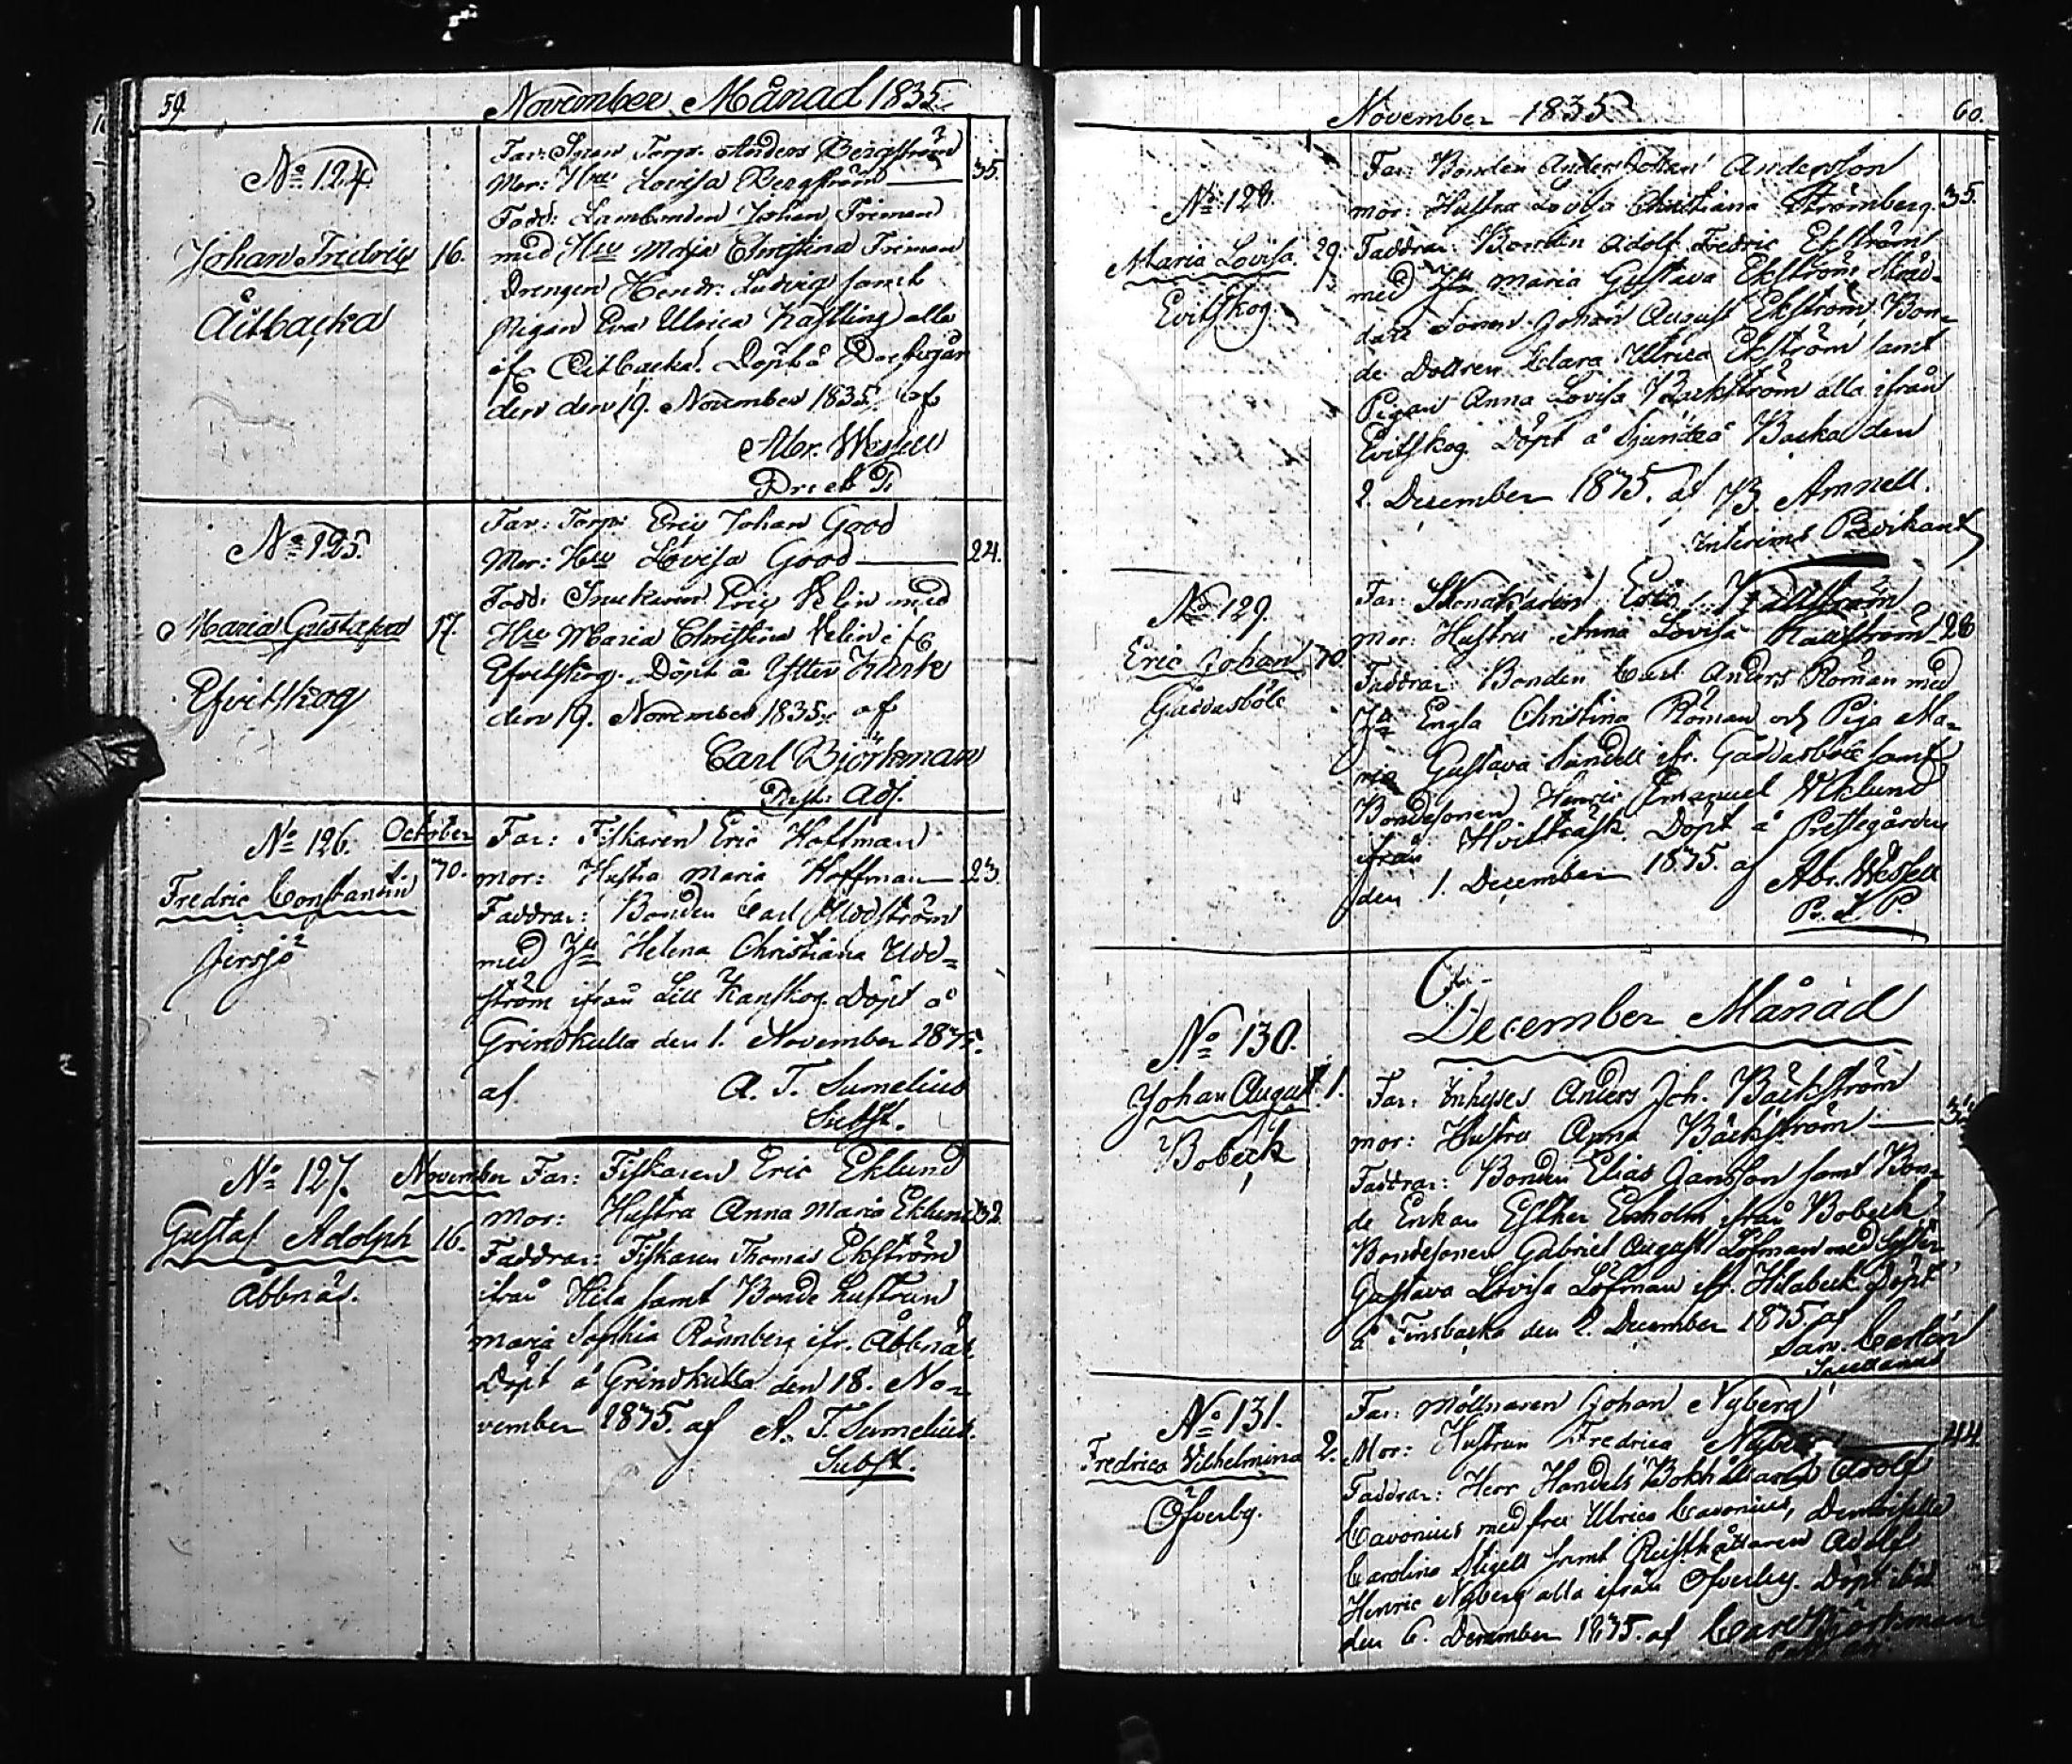 59.
November Månad 1835
No 124
Johan Fredric 16.
Far: Torp. Anders Bergström 35.
Mor: Hru Lovisa Bergström
Fadd: Johan Friman
med Hru Maja Christina Friman
Drengen Hendr. Ludvig samt
Pigan Eva Ulrica alla
Döpt å
den 19. November 1835, af
Abr. Wesell
No 125.
Maria Gustafva 17.
Efvitskog
Far: Torp: Eric Johan Good
Mor: Hru Lovisa Good 24.
Fadd: Eric Velin med
Hru Maria Christina Velin if.
Efvitskog. Döpt å Ytter Kurk
den 19. November 1835. af
Carl Björkman
Past: Adj.
No 126. October
Fredric Constantin 30.
Far: Fiskaren Eric Hoffman
mor: Hustru Maria Hoffman 23.
Faddrar: Bonden Carl Uddström
med Hu Helena Christina Udd=
ström ifrån Lill Kanskog. Döpt å
Grindkulla den 1. November 1835.
af A. T. Sumelius
Subst.
No 127. November
Gustaf Adolph 16.
Åbbnäs.
Far: Fiskaren Eric Eklund
Mor: Hustru Anna Maria Eklund 32.
Faddrar: Fiskaren Thomas Ekström
ifrån Hila samt Bonde hustrun
Maria Sophia Rönnberg ifr. Åbbnäs.
Döpt å Grindkulla den 18. No=
vember 1835. af A. T. Sumelius.
Subst.
60.
November 1835
No 128.
Maria Lovisa. 29.
Evitskog
Far: Bonden Anders Johan Andersson
mor: Hustru Lovisa Christiana Strömberg. 35.
Faddrar: Bonden Adolf Fredric Ekström
med Hu Maria Gustava Ekström,
Sonen Johan August Ekström, Bon=
de Dottren Clara Ulrica Ekström samt
Pigan Anna Lovisa Backström alla ifrån
Evitskog. Döpt å Sjundeå Backa den
2. December 1835. af B. Amnell.
Interims Predikant
No 129.
Eric Johan 30
Gåddasböle
Far: Eric Källström
mor: Hustru Anna Lovisa Källström 28
Faddrar: Bonden Carl Anders Röman med
Hu Engla Christina Röman och Piga Ma=
ria Gustava Sundell ifr. Gåddasböle samt
Bondesonen Henric Emanuel Wiklund
ifrån Hvitträsk. Döpt å Prestegården
den 1. December 1835. af Abr. Wesell
No 130.
December Månad
Johan August 1.
Bobäck
Far: Inhyses Anders Joh. Bäckström
mor: Hustru Anna Bäckström
Faddrar: Bonden Elias Jansson samt Bon=
de Enkan Esther Enholm ifrån Bobeck
Bondesonen Gabriel August Löfman med Syster
Gustava Lovisa Löfman ifr. Hilabeck Döpt
å Finsbacka den 2. December 1835. af
No 131.
Fredrica Vilhelmina 2.
Öfverby.
Far: Möllnaren Johan Nyberg
Mor: Hustrun Fredrica Nyberg 44
Faddrar: Herr Handels Bokhållaren Adolf
Cavonius med fru Ulrica Cavonius, Demoiselle
Carolina Stigell samt Rusthållaren Adolf
Henric Nyberg alla ifrån Öfverby. Döpt ibid.
den 6. December 1835. af Carl Björkman